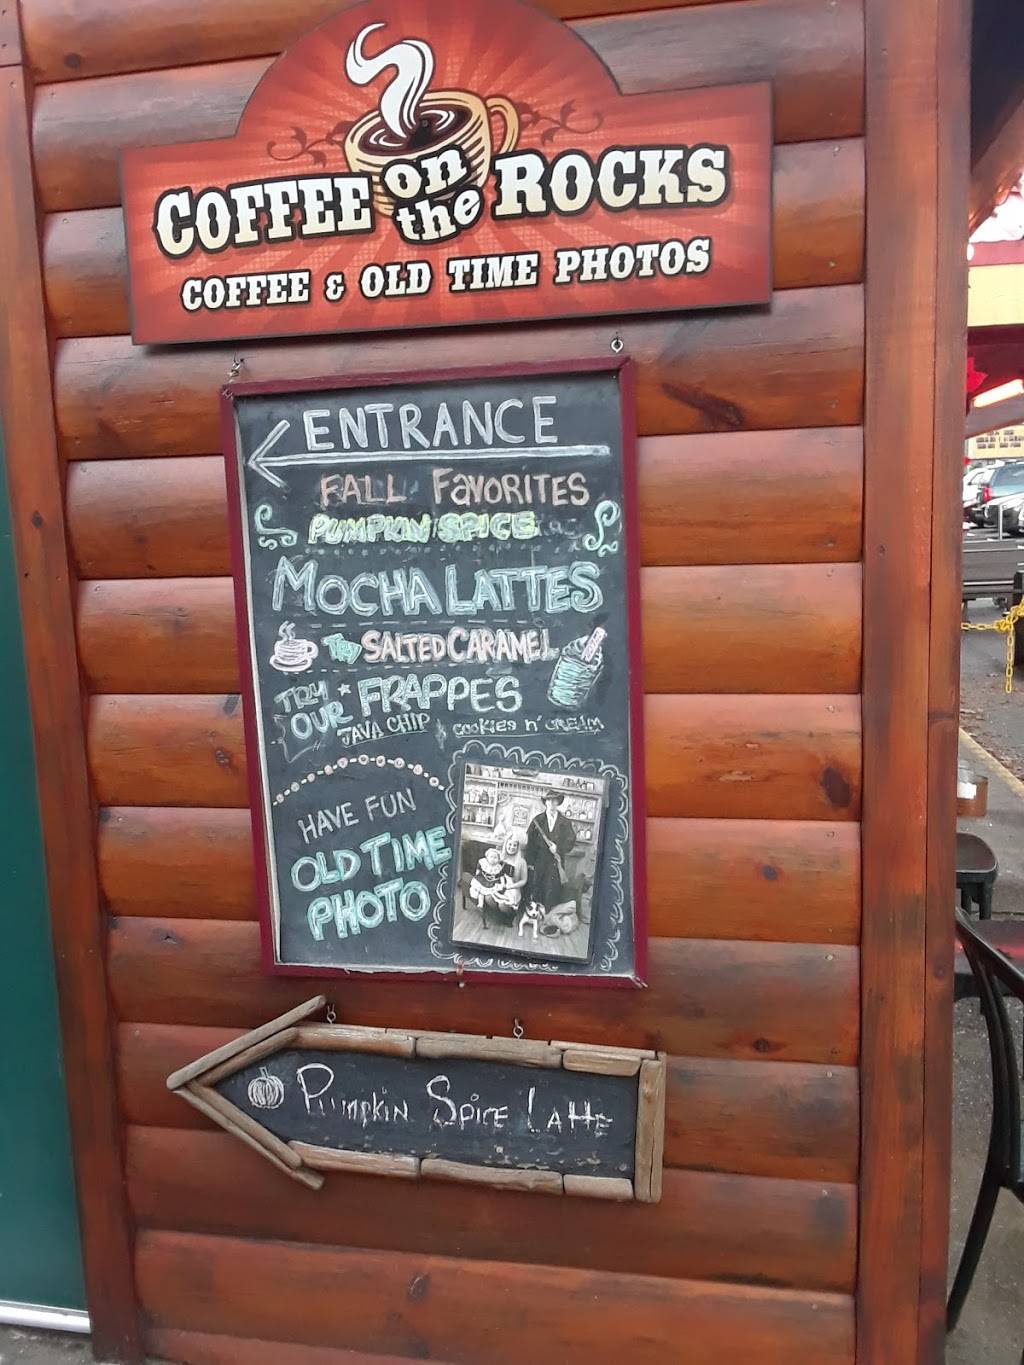 COFFEE on the ROCKS
COFFEE & OLD TIME PHOTOS
ENTRANCE
FALL FAVORITES
PUMPKIN SPICE
MOCHA LATTES
TRY SALTED CARAMEL
TRY OUR FRAPPES
JAVA CHIP & COOKIES n' CREAM
HAVE FUN
OLD TIME
PHOTO
PUMPKIN SPICE LATTE